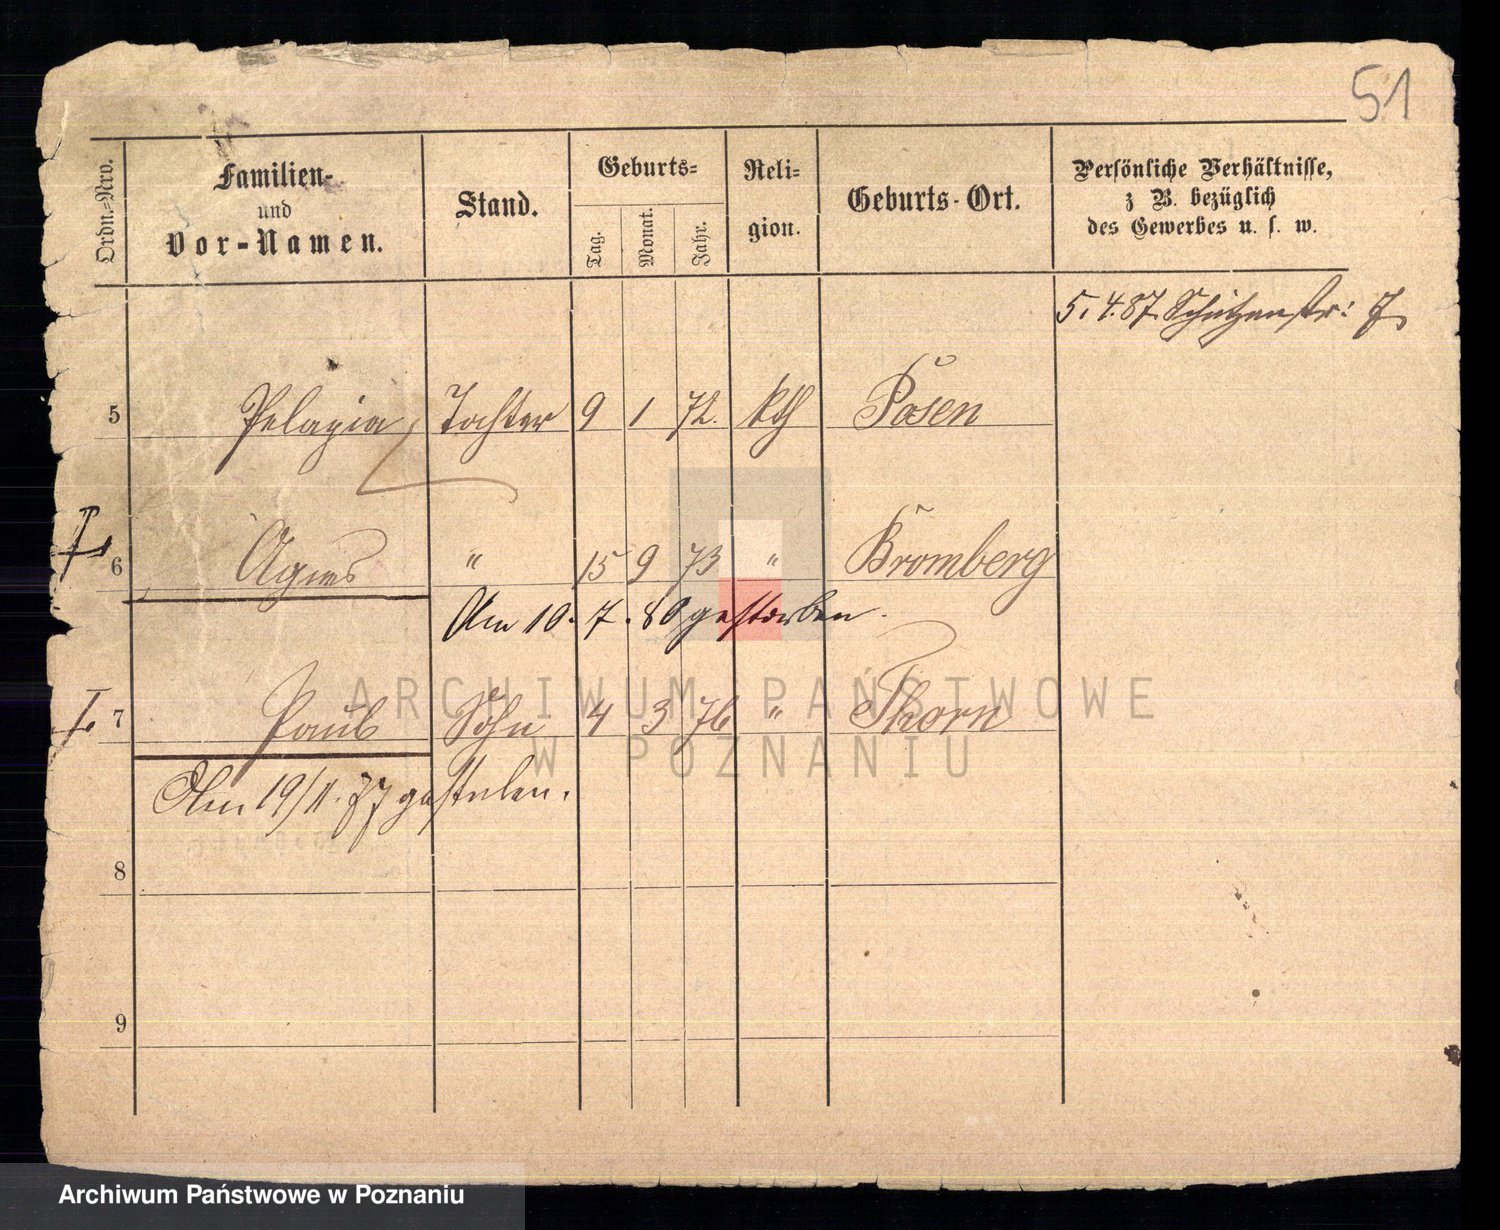 51
Ordn.-Nro.
Familien-
und
Vor-Namen.
Stand.
Geburts-
Tag.
Monat.
Jahr.
Reli-
gion.
Geburts-Ort.
Persönliche Verhältnisse,
z B. bezüglich
des Gewerbes u. s. w.
5. 4. 87. Schützenstr: 7
5 Pelagia Tochter 9 1 72. kth Posen
6 Agnes " 15 9 73 " Bromberg
Am 10. 7. 80 gestorben.
7 Paul Sohn 4 3 76 " Thorn
Am 19/11. 77 gestorben.
8
9
ARCHIWUM PAŃSTWOWE
W POZNANIU
Archiwum Państwowe w Poznaniu